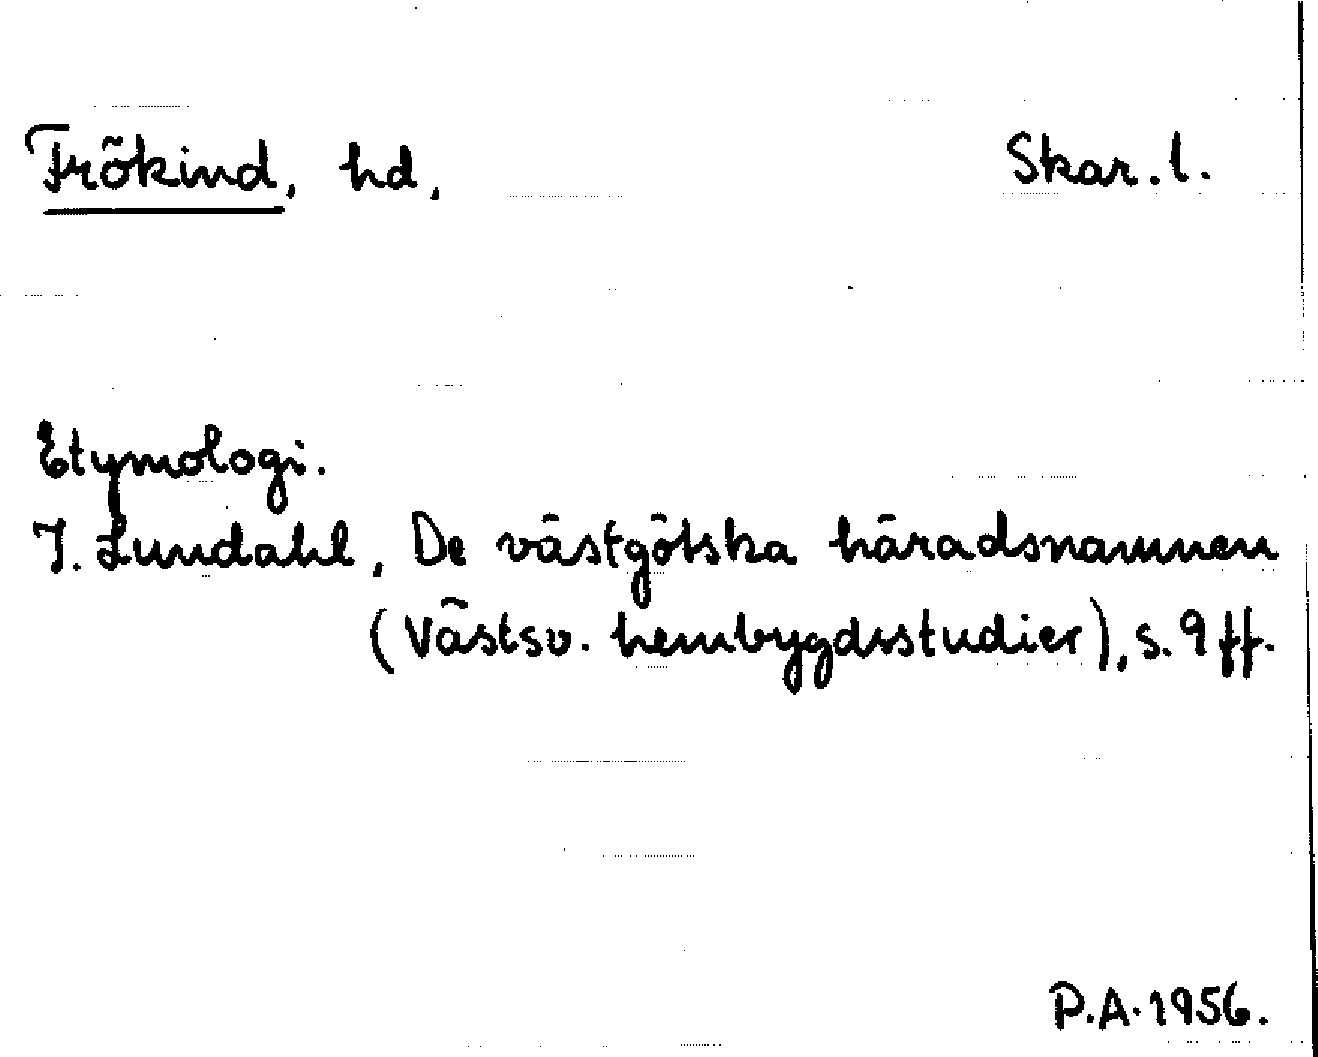 Frökind, hd, Skar. l.
Etymologi.
I. Lundahl, De västgötska häradsnamnen
(Västsv. hembygdsstudier), s. 9 ff.
P.A. 1956.